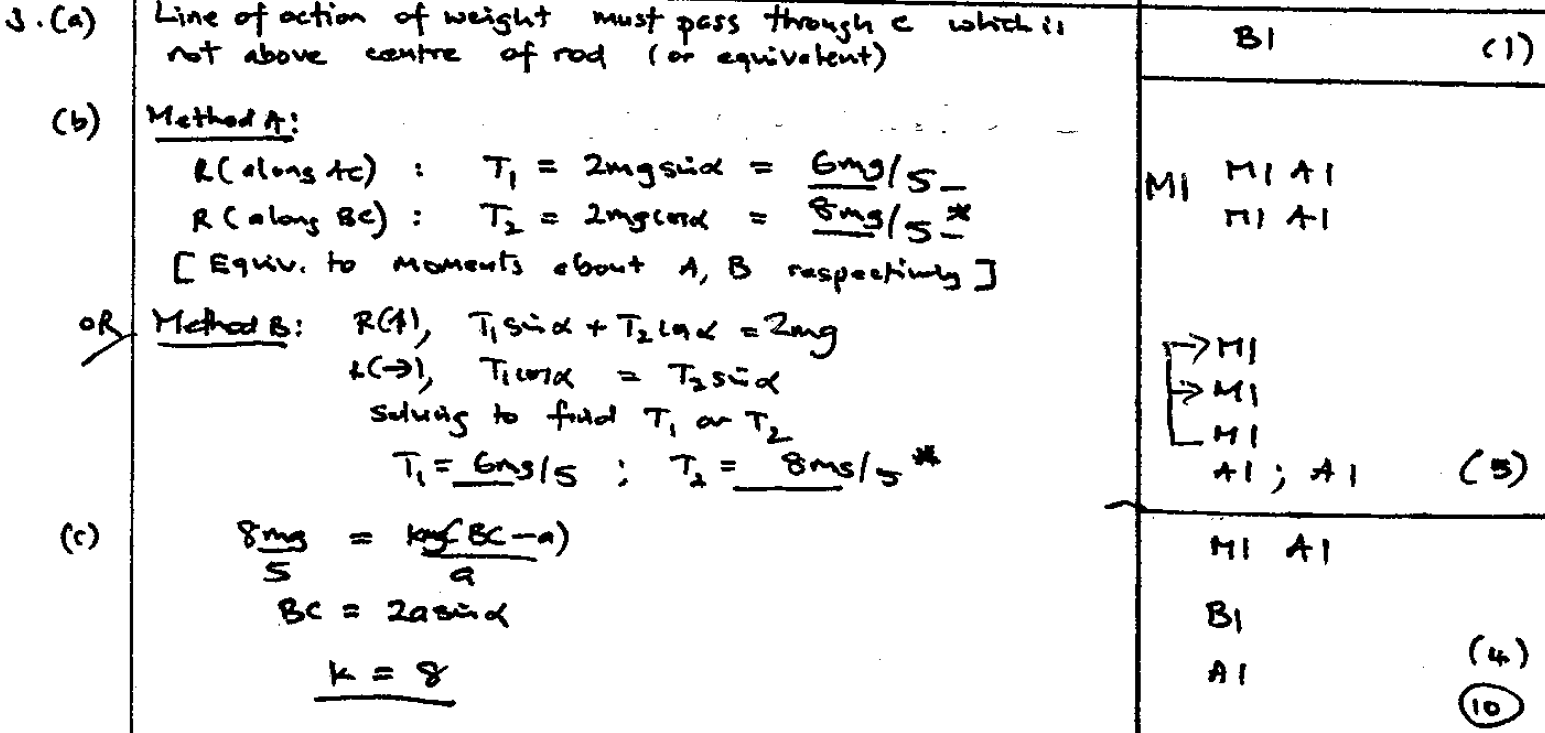 3. (a) Line of action of weight must pass through C which is B1 (1)
not above centre of rod (or equivalent)
(b) Method A:
R(along AC) : T₁ = 2mg sinα = 6mg/5 M1 M1 A1
R(along BC) : T₂ = 2mg cosα = 8mg/5 * M1 A1
[Equiv. to moments about A, B respectively]
OR Method B: R(↑), T₁ sinα + T₂ cosα = 2mg M1
R(→), T₁ cosα = T₂ sinα M1
Solving to find T₁ or T₂ M1
T₁ = 6mg/5 ; T₂ = 8mg/5 * A1 ; A1 (5)
(c) 8mg/5 = kmg(BC-a)/a M1 A1
BC = 2a sinα B1
k = 8 A1 (4)
10